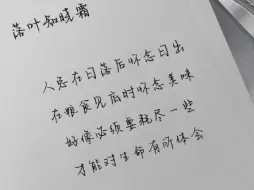 落叶知晓霜
人总在日落后怀念日出
在粮食见底时怀念美味
好像必须要耗尽一些
才能对生命有所体会